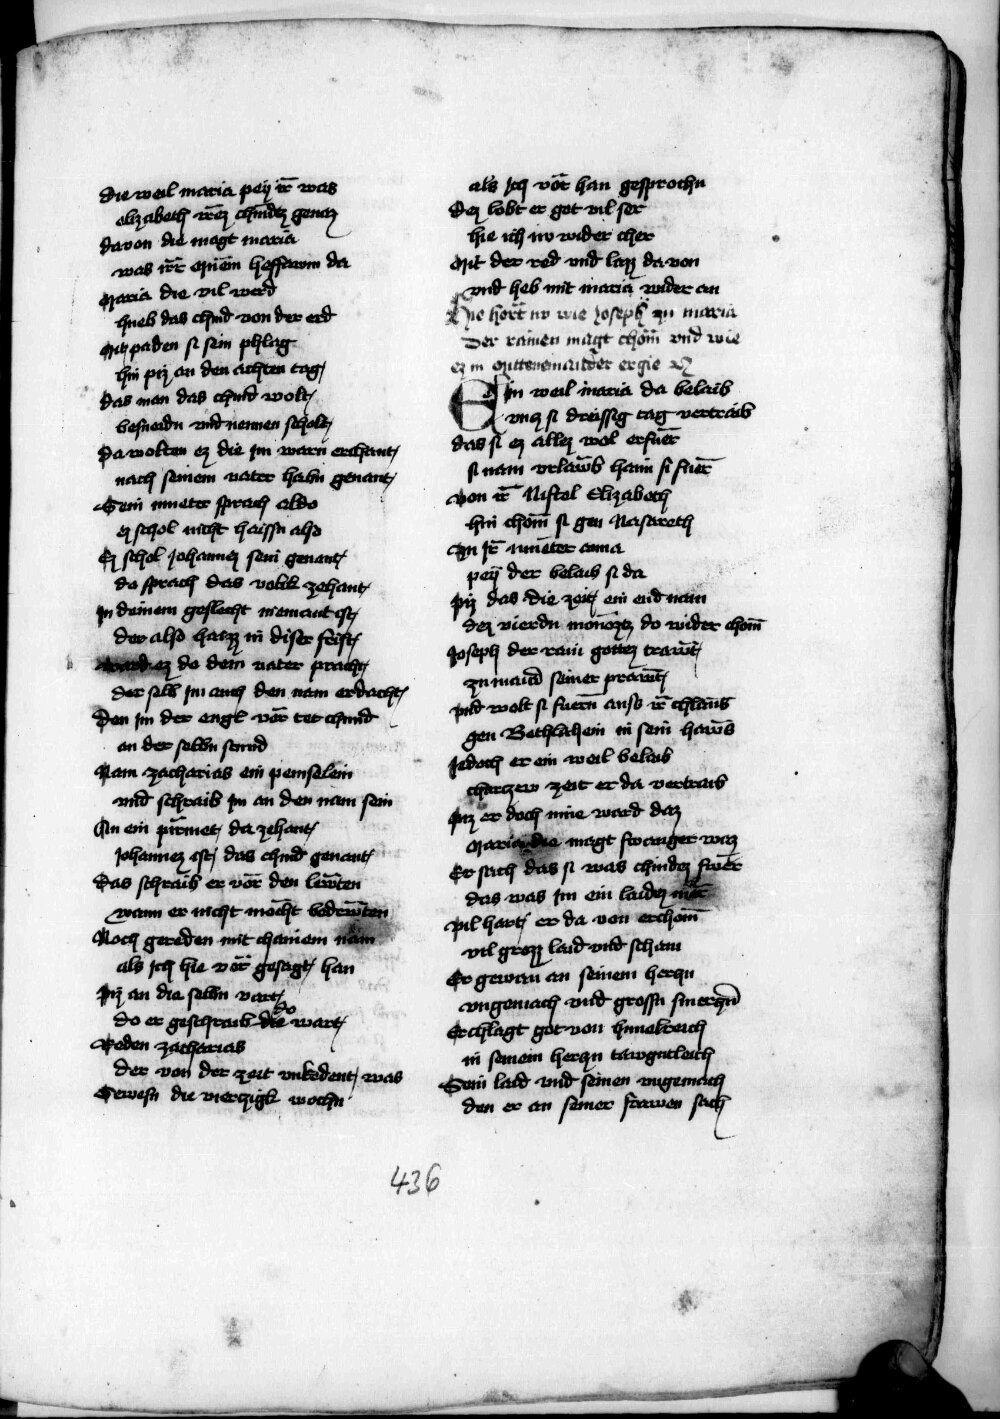 Die weil maria peÿ ir̄ was
elizabeth irez chindez genaz
davon die magt maria
was irr̄ mūem heffarm da
Maria die vil werd
hueb das chind von der erd
Mit paden si sein phlag
hin piz an den achten tag
Das man das chind wolt
besneidn vnd nennen scholt
Da wolten ez die im warn erchant
nach seinem vater habn genant
Sein mueter sprach aldo
ez schol nicht haissn also
Ez schol Johannez sein genant
do sprach das volkk zehant
In deinem geslecht niemant ist
der also haizz in diser frist
ward ez do dem vater pracht
der selb im auch den nam erdacht
Den im der engl vor tet chund
an der selbn stund
Nam zacharias ein pemselein
vnd schraib im an den nam sein
An ein pirmet da zehant
Johannez ist das chind genant
Das schraib er vor den lewten
wann er nicht mocht bedewten
Noch gereden mit chainem nam
als ich hie vor gesagt han
Piz an die selbn vart
do er geschraib die wort
Reden zacharias
der von der zeit vnredent was
Gewesn die vierczigk wochn
436
als ich vor han gesprochn
Dez lobt er got vil ser
hie ich nv wider cher
Mit der red vnd laz da von
vnd heb mit maria wider an
Hie hort nv wie Joseph zu maria
Der rainen magt chom vnd wie
ez in mitteneinander ergie
Ein weil maria da belaib
vncz si dreissig tag vertraib
das si ez allez wol erfuer
si nam vrlawb haim si fuer
von ir̄ Niftel Elizabeth
hin chom si gen Nasareth
Zu Ir̄ mueter anna
peÿ der belaib si da
Piz das die zeit ein end nam
Dez vierdn monetz do wider chom
Joseph der rain gottez trawt
zu maria seiner prawt
Vnd wolt si fuern auss ir chlaus
gen Bethlahem in sein haws
Jedoch er ein weil belaib
churczew zeit er da vertraib
Piz er doch inne ward daz
Maria die magt swanger waz
Er sach das si was chindez swer
das was im ein laidez mer
Vil hart er da von erchom
vil grozz laid vnd scham
Er gewan an seinem herczn
vngemach vnd grossn smerczn
Er chlagt got von himelreich
in seinem herczn tawgntleich
Sein laid vnd seinen vngemach
den er an seiner frawen sach